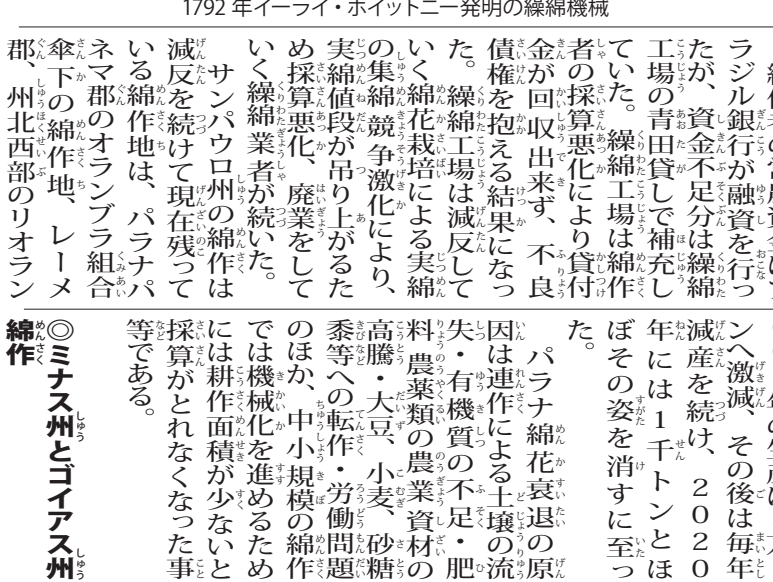 1792 年イーライ・ホイットニー発明の繰綿機械
ラジル銀行が融資を行っ
たが、資金不足分は繰綿
工場の青田貸しで補充し
ていた。繰綿工場は綿作
者の採算悪化により貸付
金が回収出来ず、不良
債権を抱える結果になっ
た。繰綿工場は減反して
いく綿花栽培による実綿
の集綿競争激化により、
実綿値段が吊り上がるた
め採算悪化、廃業をして
いく繰綿業者が続いた。
サンパウロ州の綿作は
減反を続けて現在残って
いる綿作地は、パラナパ
ネマ郡のオランブラ組合
傘下の綿作地、レーメ
郡、州北西部のリオラン
ンへ激減、その後は毎年
減産を続け、2020
年には1千トンとほ
ぼその姿を消すに至っ
た。
パラナ綿花衰退の原
因は連作による土壌の流
失・有機質の不足・肥
料、農薬類の農業資材の
高騰・大豆、小麦、砂糖
黍等への転作・労働問題
のほか、中小規模の綿作
では機械化を進めるため
には耕作面積が少ないと
採算がとれなくなった事
等である。
◎ミナス州とゴイアス州
綿作